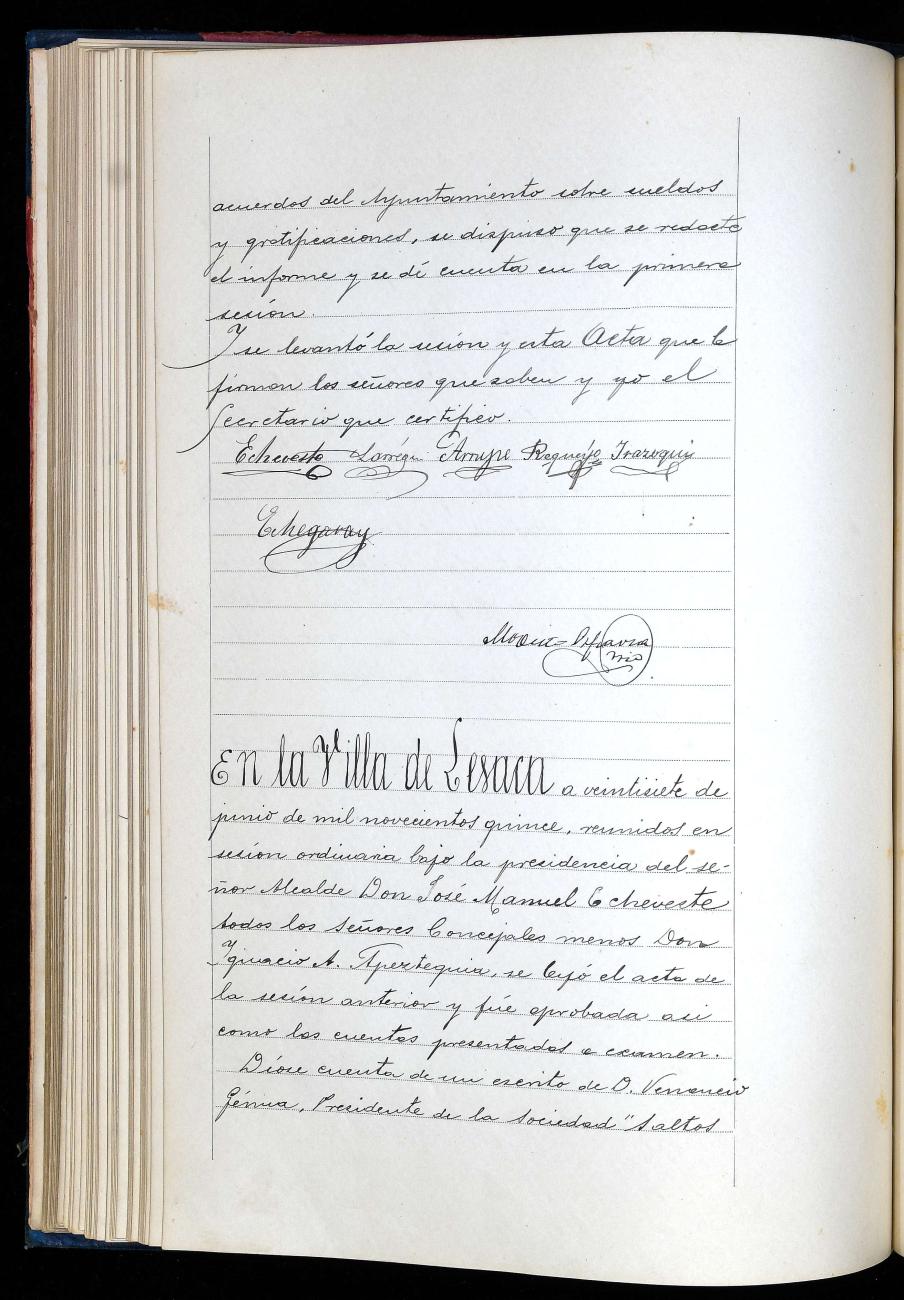 acuerdos del Ayuntamiento sobre sueldos
y gratificaciones, se dispuso que se redacte
el informe y se dé cuenta en la primera
sesión.
Y se levantó la sesión y esta Acta que la
firman los señores que saben y yo el
Secretario que certifico.
Echeveste Larrégui Arrupe Requejo Irazoqui
Echegaray
En la Villa de Lesaca a veintisiete de
junio de mil novecientos quince, reunidos en
sesión ordinaria bajo la presidencia del se-
ñor Alcalde Don José Manuel Echeveste
todos los Señores Concejales menos Don
Ygnacio A. Apezteguia, se leyó el acta de
la sesión anterior y fúe aprobada asi
como las cuentas presentadas a examen.
Dióse cuenta de un escrito de D. Venancio
Génua, Presidente de la Sociedad "Saltos